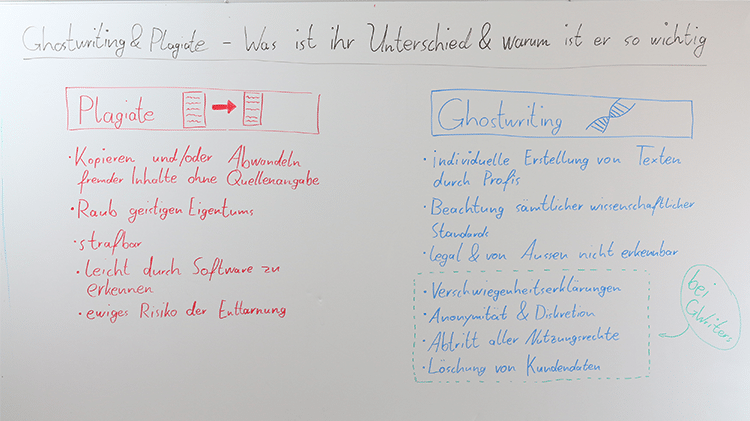 Ghostwriting & Plagiate - Was ist ihr Unterschied & warum ist er so wichtig
Plagiate
• Kopieren und/oder Abwandeln
fremder Inhalte ohne Quellenangabe
• Raub geistigen Eigentums
• strafbar
• Leicht durch Software zu
erkennen
• ewiges Risiko der Enttarnung
Ghostwriting
• individuelle Erstellung von Texten
durch Profis
• Beachtung sämtlicher wissenschaftlicher
Standards
• legal & von Aussen nicht erkennbar
• Verschwiegenheitserklärungen
• Anonymität & Diskretion
• Abtritt aller Nutzungsrechte
• Löschung von Kundendaten
bei
GWriters